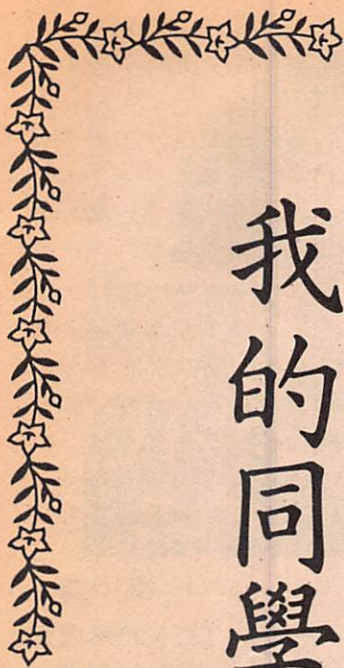 我的同學